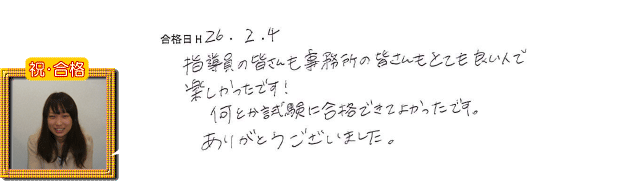 合格日 H 26. 2. 4
指導員の皆さんも事務所の皆さんもとても良い人で
楽しかったです！
何とか試験に合格できてよかったです。
ありがとうございました。
祝・合格